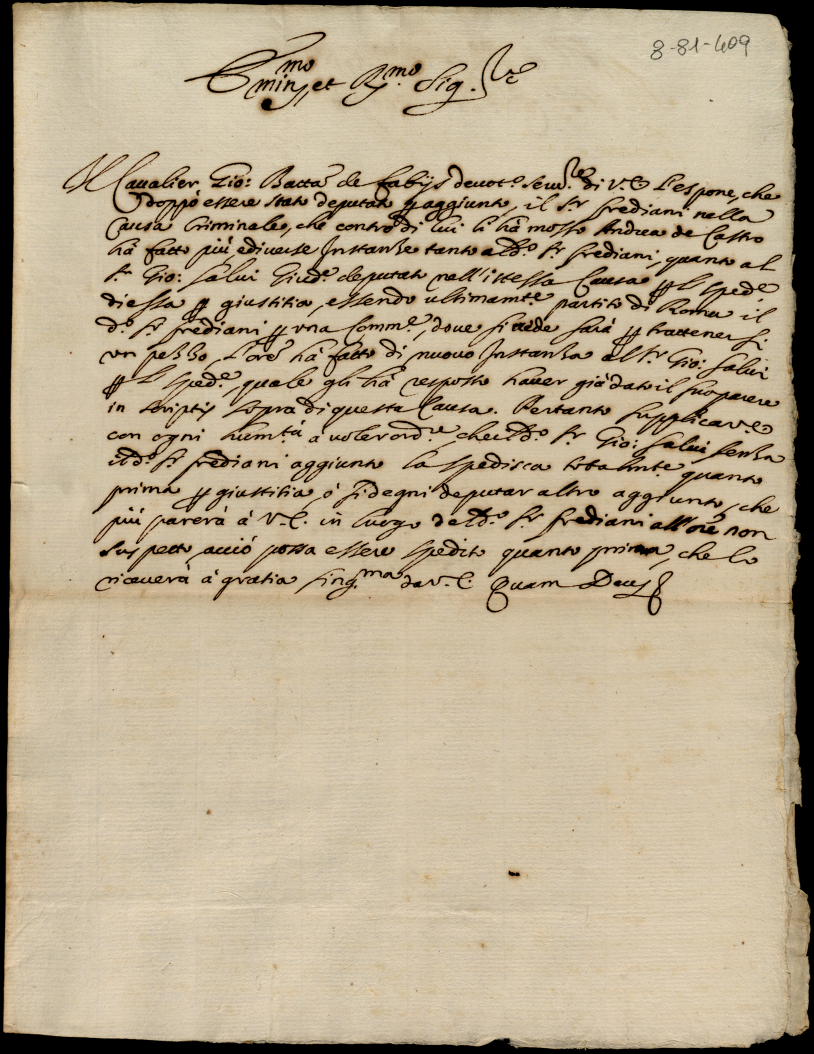 8-81-409
Emin.mo et R.mo Sig.re
Il Cavalier Gio: Batta de Fabijs devot.o serv.re di V.E. l'espone, che
doppò essere stato deputato p aggiunto, il S.r Frediani nella
Causa Criminale, che contro di lui li hà mosso Andrea de Castro
hà fatto più, e diverse Instanze tanto al d.o S.r Frediani, quanto al
S.r Gio: Salvi Giud.e deputato nell'istessa Causa p l sped.e
di essa p giustitia, essendo ultimam.te partito di Roma il
d.o S.r Frediani p una Comm.e, dove si uede sarà p trattenersi
un pezzo, l'Ore hà fatto di nuovo Instanza al S.r Gio: Salvi
p l sped.e, quale gli hà resposto haver già dato il suo parere
in scriptis sopra di questa Causa. Pertanto supplica V.E.
con ogni hum.tà à voler ord.re che il d.o S.r Gio: Salvi senza
il d.o S.r Frediani aggiunto la spedisca totalm.te quanto
prima p giustitia, ò si degni deputar altro aggiunto, che
più parerà à V.E. in luogo del d.o S.r Frediani all'Ore non
suspetto, acciò possa essere spedito quanto prima, che lo
riceverà à gratia sing.ma da V.E. Quam Deus